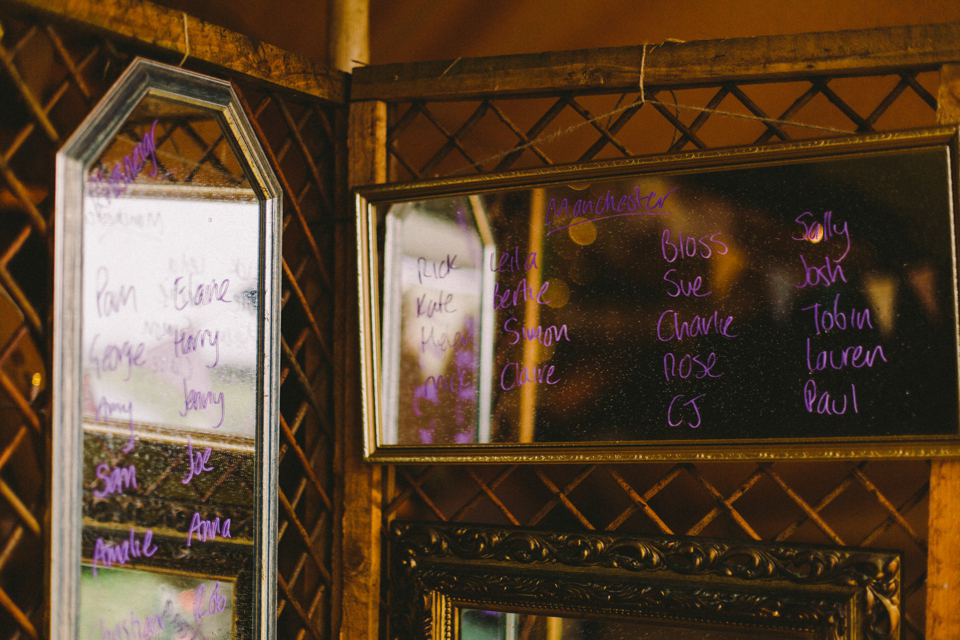 Pam Elaine
George Harry
Amy Jenny
Sam Joe
Amalie Anna
Manchester
Rick Leila Bloss Sally
Kate Bertie Sue Josh
Simon Charlie Tobin
Claire Rose Lauren
CJ Paul